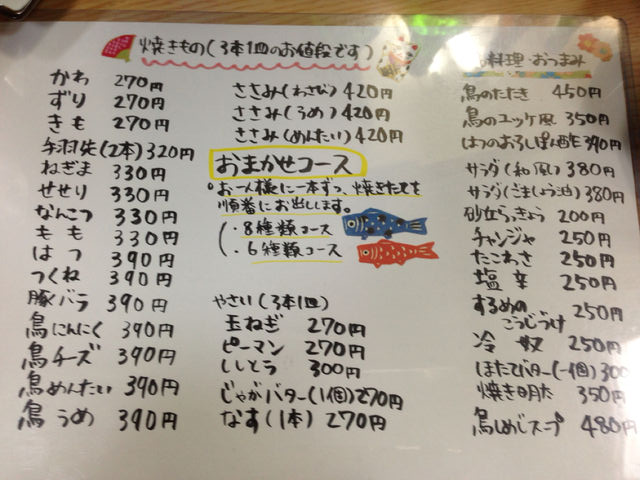 焼きもの(3本1皿のお値段です)
かわ 270円
ずり 270円
きも 270円
手羽先(2本)320円
ねぎま 330円
せせり 330円
なんこつ 330円
もも 330円
はつ 390円
つくね 390円
豚バラ 390円
鳥にんにく 390円
鳥チーズ 390円
鳥めんたい 390円
鳥うめ 390円
ささみ(わさび)420円
ささみ(うめ)420円
ささみ(めんたい)420円
おまかせコース
お一人様に一本ずつ、焼きたてを
順番にお出しします。
・8種類コース
・6種類コース
やさい(3本1皿)
玉ねぎ 270円
ピーマン 270円
ししとう 300円
じゃがバター(1個)270円
なす(1本)270円
料理・おつまみ
鳥のたたき 450円
鳥のユッケ風 350円
はつのおろしぽん酢 390円
サラダ(和風)380円
サラダ(ごましょうゆ)380円
砂ずりらっきょう 200円
チャンジャ 250円
たこわさ 250円
塩辛 250円
するめの
こうじづけ 250円
冷奴 250円
ほたてバター(一個)300
焼き明太 350円
鳥しめじスープ 480円